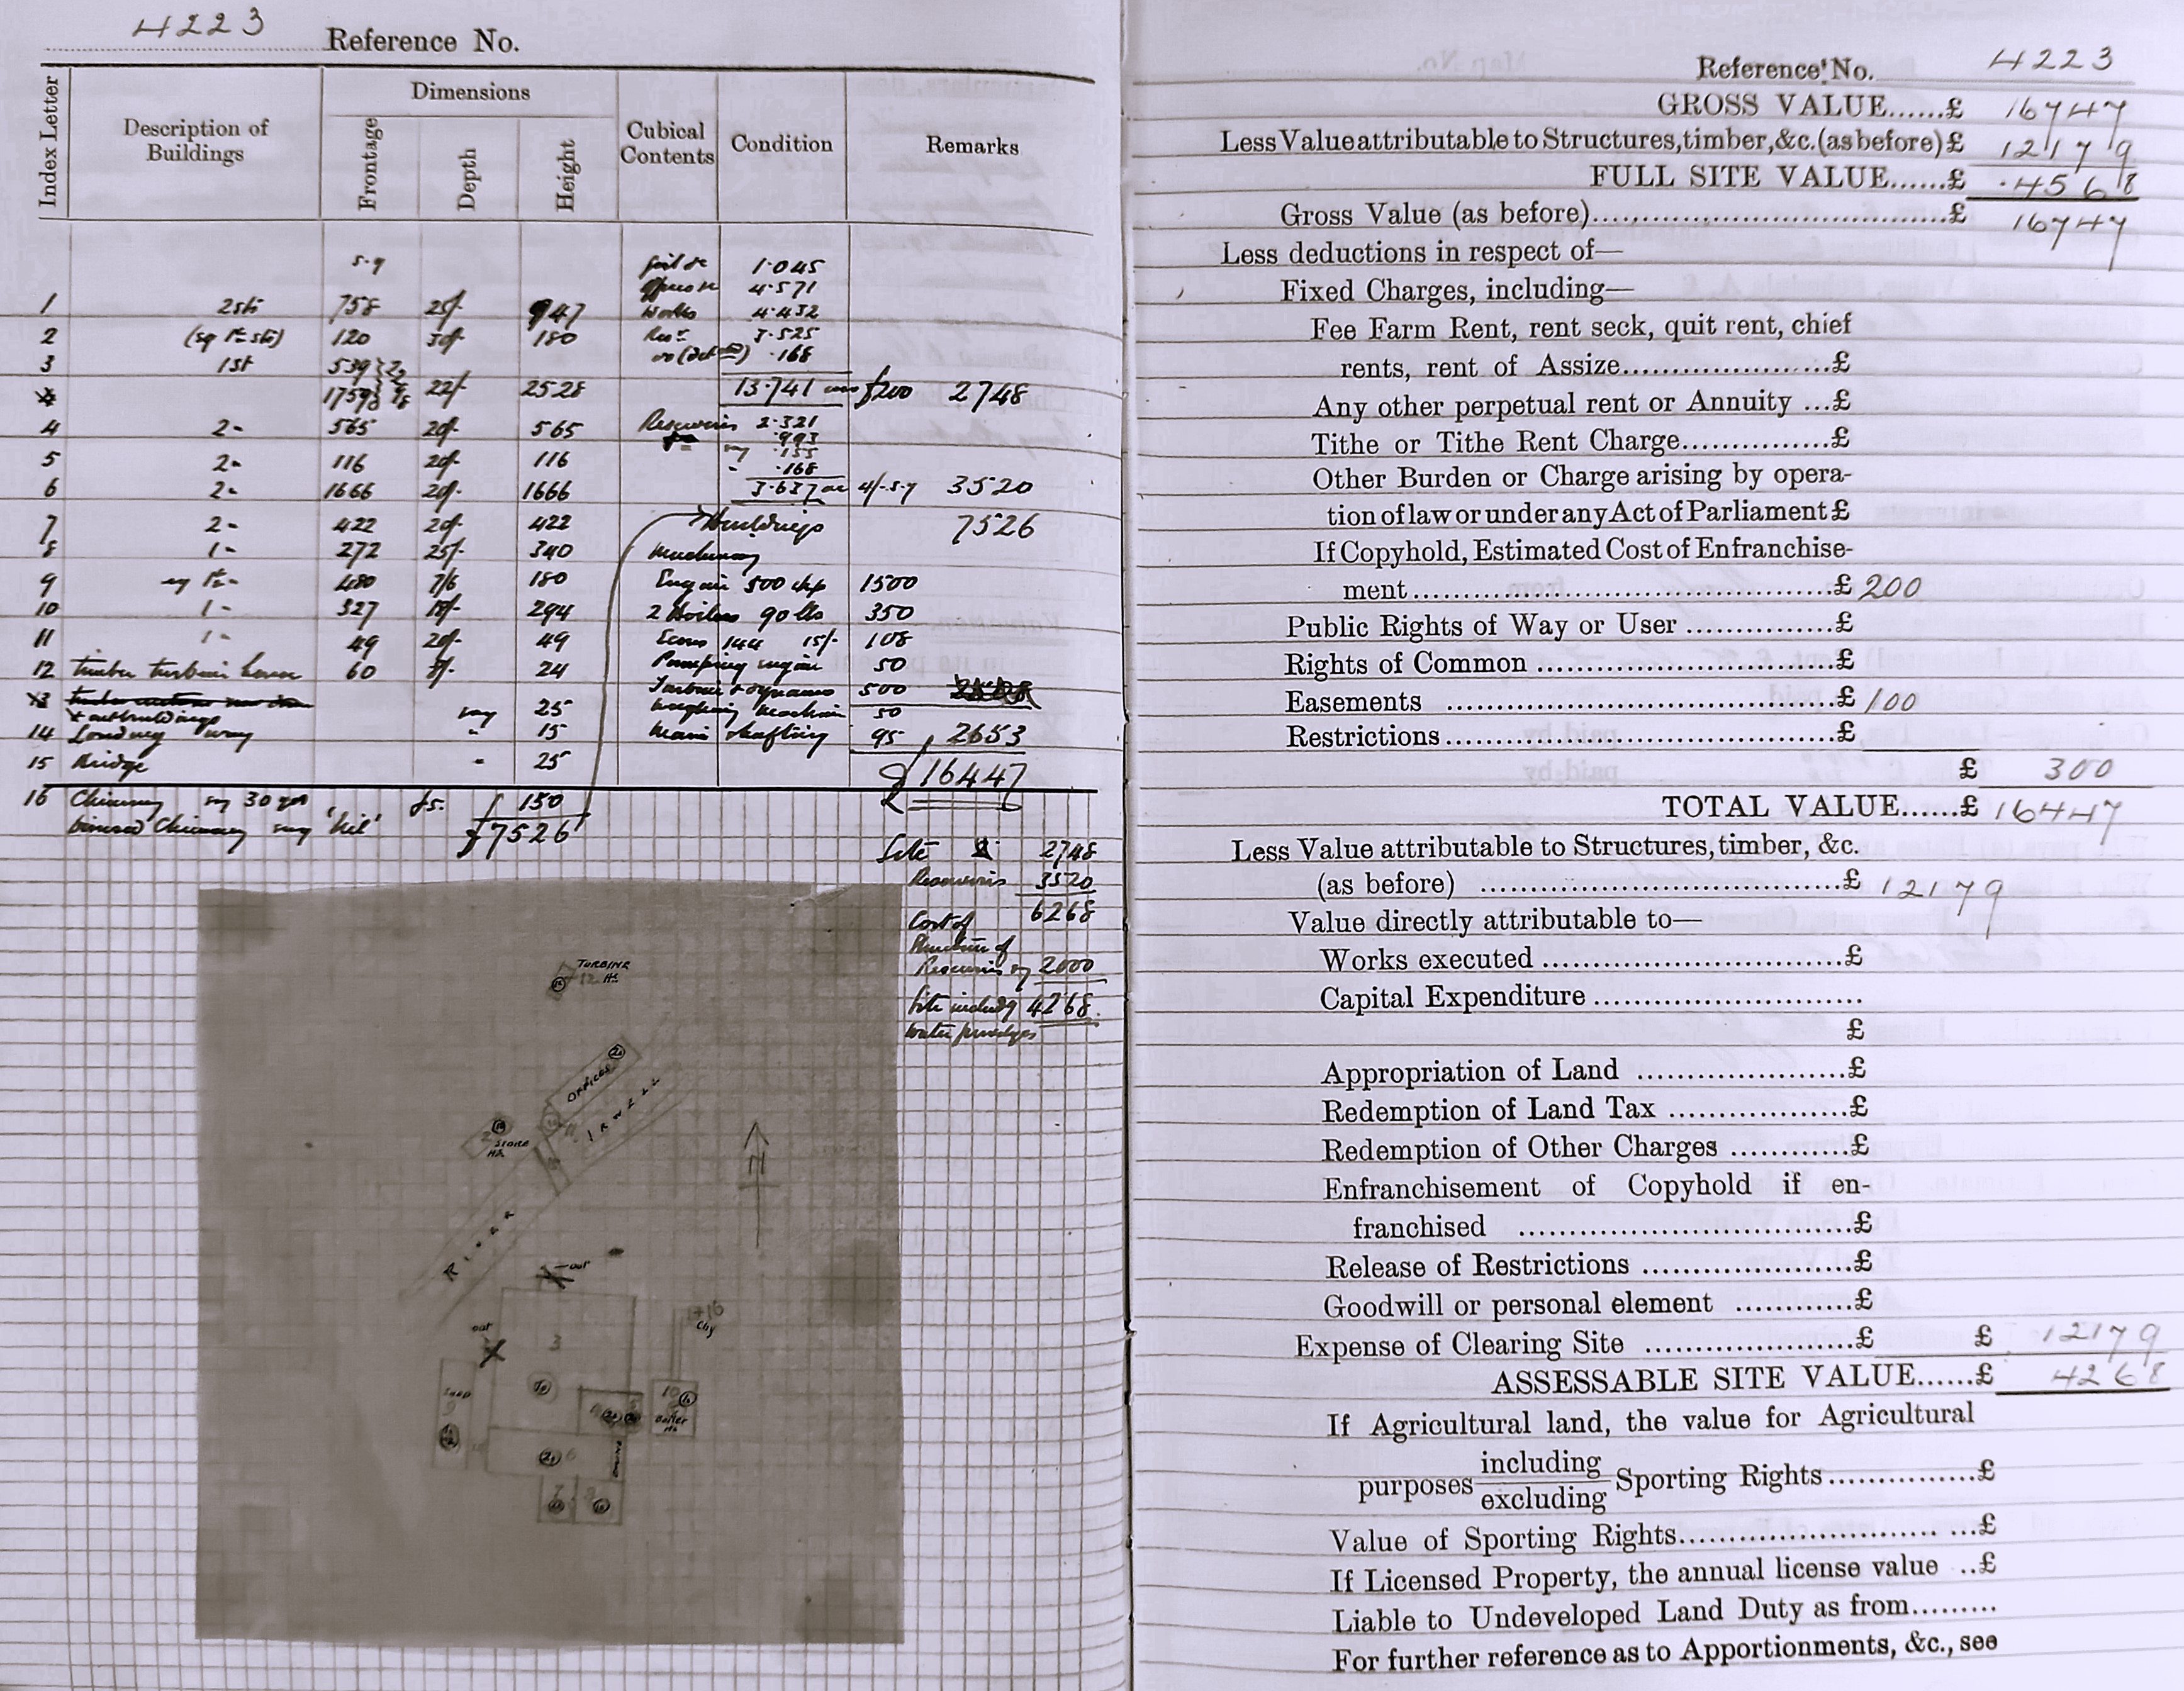 4223 Reference No.
Index Letter
Description of Buildings
Dimensions
Frontage
Depth
Height
Cubical Contents
Condition
Remarks
s.y
1.045
4.571
1 2sti 758 25/- 947 Works 4.432
2 (sg pt sti) 120 30/- 180 Resr 3.525
3 1st 539 .168
1759 22/- 2528 13.741 £200 2748
4 2" 565 20/- 565 Reservoirs 2.321
.993
5 2" 116 20/- 116 say .155
.168
6 2" 1666 20/- 1666 3.637 ac 4/- s.y 3520
7 2" 422 20/- 422 Buildings 7526
8 1" 272 25/- 340 Machinery
9 480 7/6 180 Engine 500 ihp 1500
10 1" 327 18/- 294 2 Boilers 90 lbs 350
11 1" 49 20/- 49 Econs 144 15/- 108
12 timber turbine house 60 8/- 24 Pumping engine 50
Turbine & dynamo 500
+ outbuildings say 25 weighing machine 50
14 Loading way " 15 Main shafting 95 2653
15 Bridge " 25 £16447
16 Chimney say 30 yds £5. 150
disused Chimney say 'nil' £7526
Site 2748
Reservoirs 3520
6268
Cost of
Structure of
Reservoirs say 2000
Site includg 4268
water privileges
TURBINE
12 Hs
OFFICES
IRWELL
STORE
Hs
RIVER
out
out
3
16
Chy
10
BOILER
Hs
6
ENGINE
7
8
Reference No. 4223
GROSS VALUE......£ 16747
Less Value attributable to Structures, timber, &c. (as before) £ 12179
FULL SITE VALUE......£ 4568
Gross Value (as before)......£ 16747
Less deductions in respect of—
Fixed Charges, including—
Fee Farm Rent, rent seck, quit rent, chief
rents, rent of Assize......£
Any other perpetual rent or Annuity ...£
Tithe or Tithe Rent Charge......£
Other Burden or Charge arising by opera-
tion of law or under any Act of Parliament £
If Copyhold, Estimated Cost of Enfranchise-
ment......£ 200
Public Rights of Way or User......£
Rights of Common......£
Easements......£ 100
Restrictions......£
£ 300
TOTAL VALUE......£ 16447
Less Value attributable to Structures, timber, &c.
(as before)......£ 12179
Value directly attributable to—
Works executed......£
Capital Expenditure......
£
Appropriation of Land......£
Redemption of Land Tax......£
Redemption of Other Charges......£
Enfranchisement of Copyhold if en-
franchised......£
Release of Restrictions......£
Goodwill or personal element......£
Expense of Clearing Site......£ £ 12179
ASSESSABLE SITE VALUE......£ 4268
If Agricultural land, the value for Agricultural
purposes including
excluding Sporting Rights......£
Value of Sporting Rights......£
If Licensed Property, the annual license value ..£
Liable to Undeveloped Land Duty as from.........
For further reference as to Apportionments, &c., see